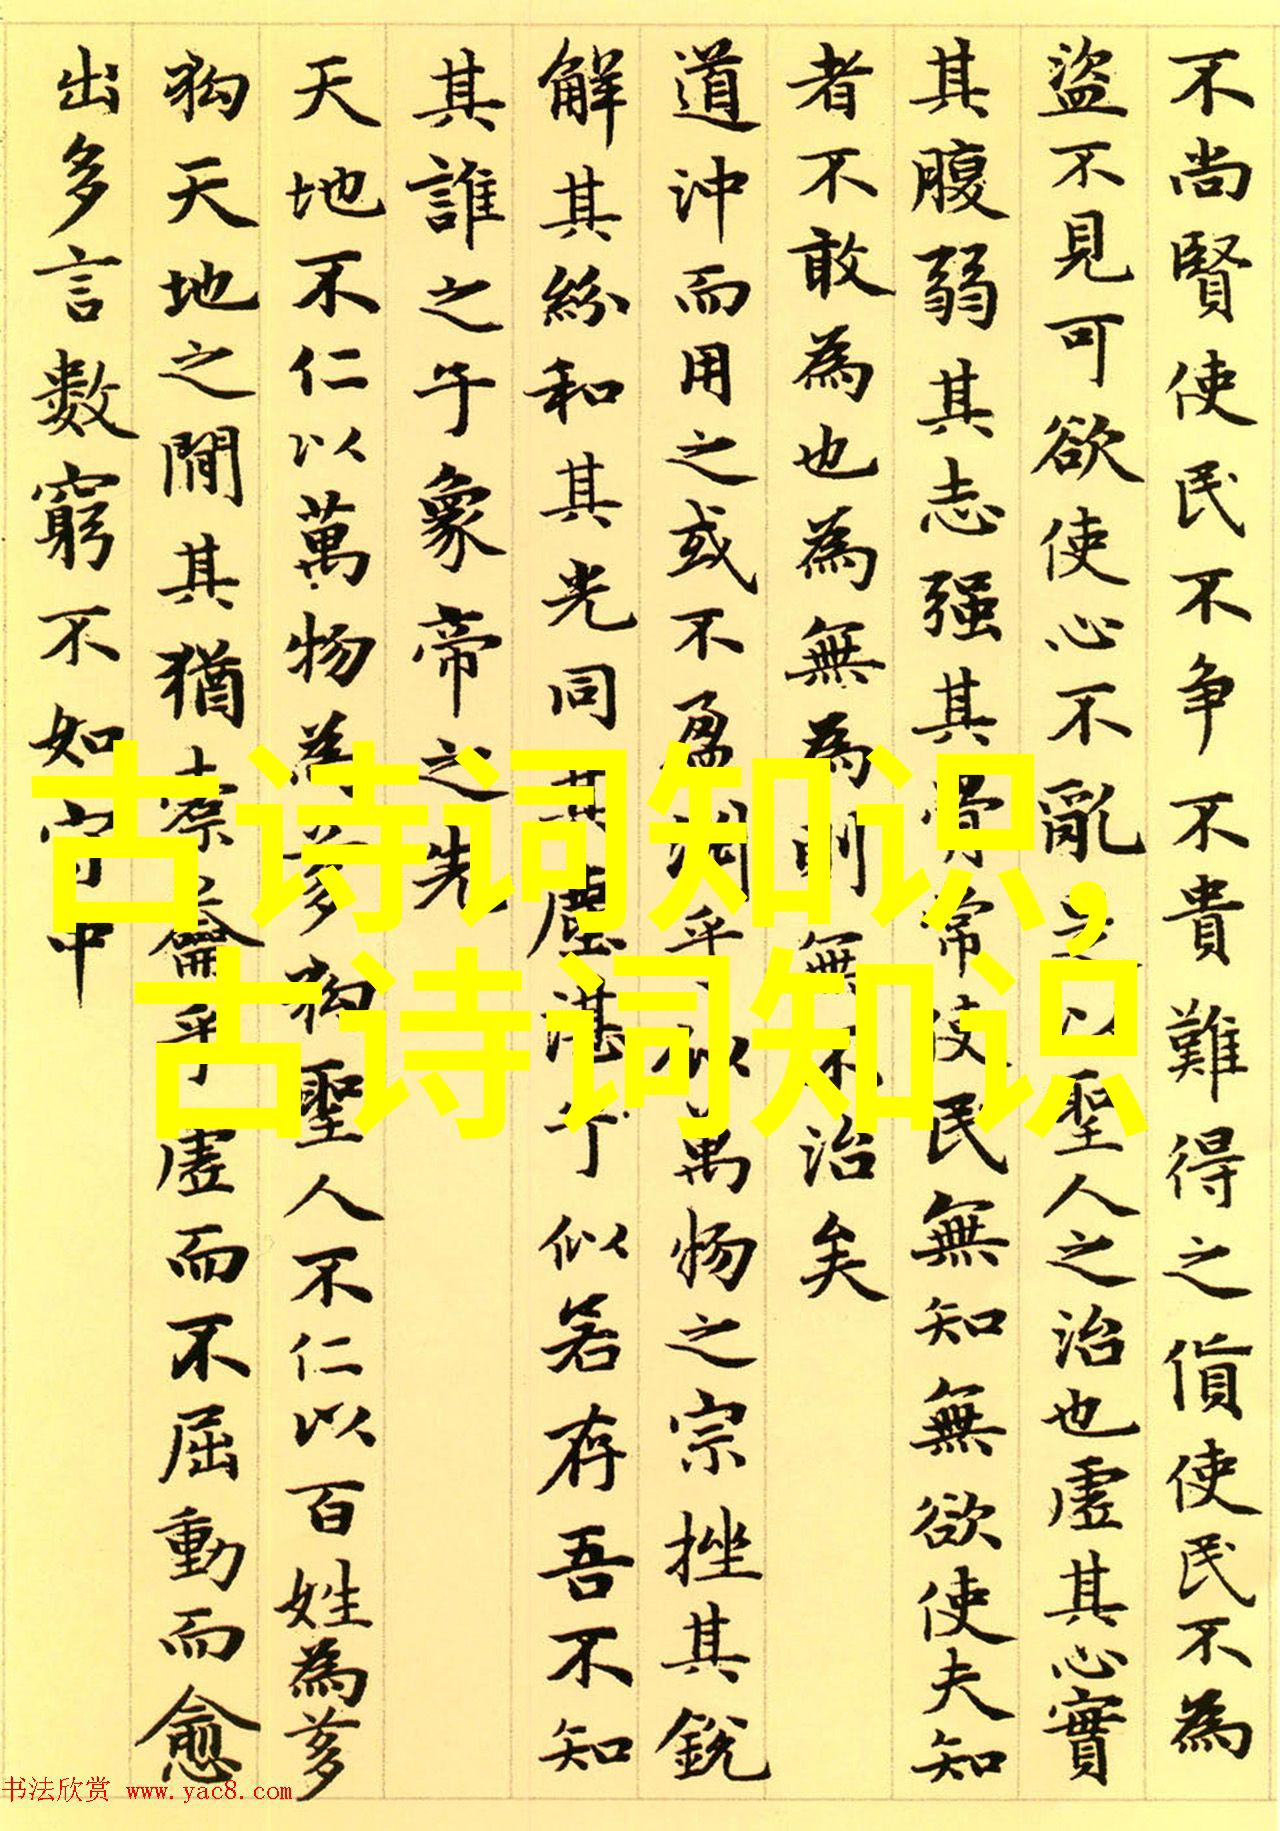 不尚賢使民不争不貴難得之貨使民不為
盜不見可欲使心不亂是以聖人之治也虛其心實
其腹弱其志强其骨常使民無知無欲使夫知
者不敢為也為無為則無不治矣
道沖而用之或不盈淵乎似萬物之宗挫其銳
解其紛和其光同其塵湛乎似若存吾不知
其誰之子象帝之先
天地不仁以萬物為芻狗聖人不仁以百姓為芻
狗天地之間其猶橐籥乎虛而不屈動而愈
出多言數窮不如守中
古诗词知识,
古诗词知识
书法欣赏 www.yac8.com